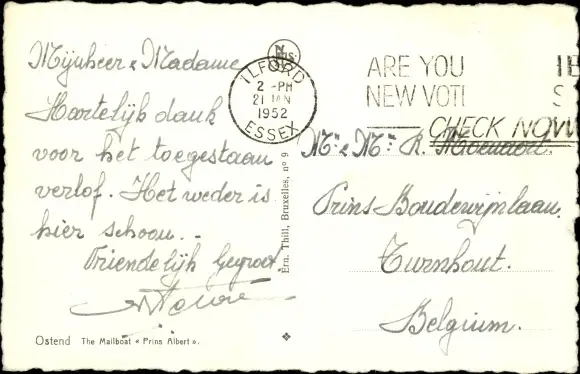 Mijnheer & Madame
Hartelijk dank
voor het toegestaan
verlof. Het weder is
hier schoon.
Vriendelijk Gegroet.
Ostend The Mailboat « Prins Albert ».
Ern. Thill, Bruxelles, n° 9
ILFORD
2 - PM
21 JAN
1952
ESSEX
ARE YOU
NEW VOT
CHECK NOW
Mr & Mme R.
Prins Boudewijnlaan.
Turnhout.
Belgium.